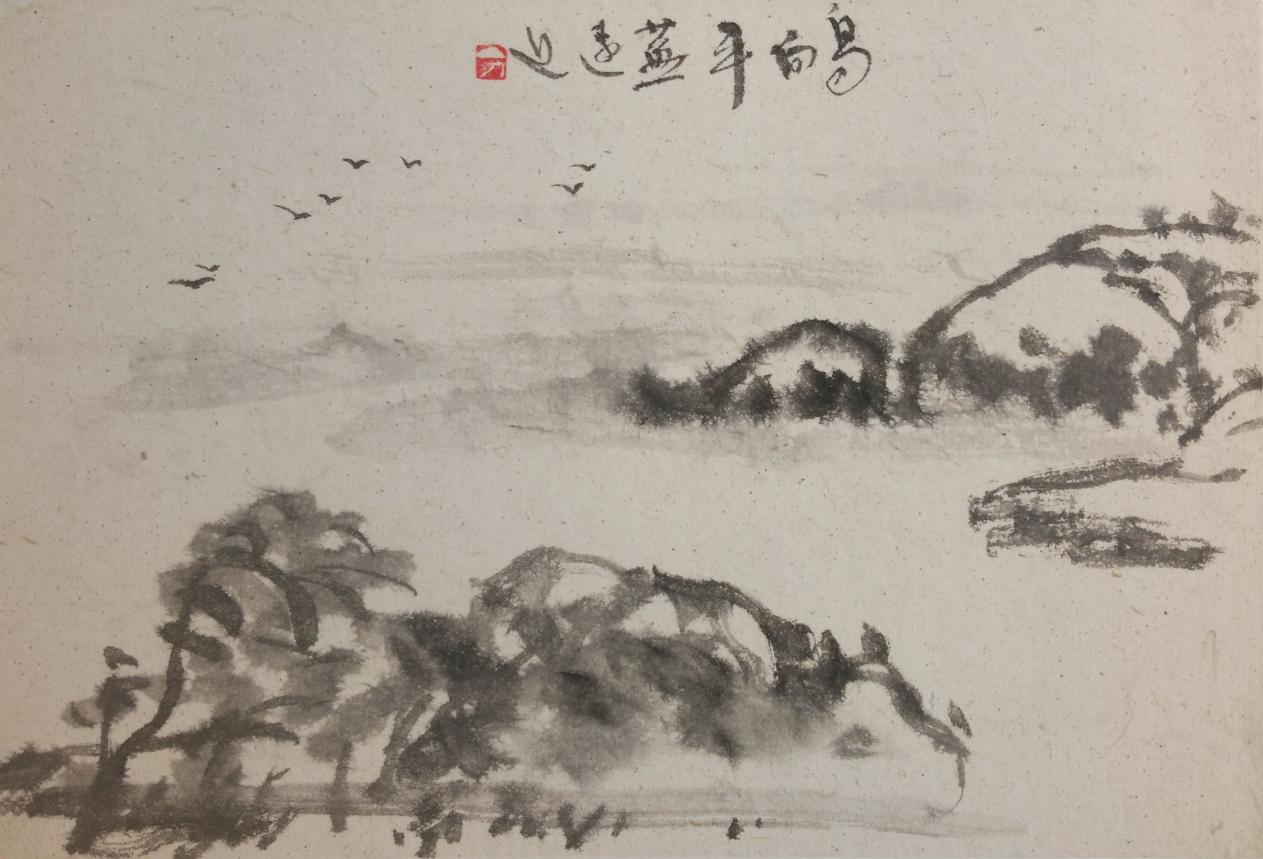 鳥向平蕪遠近